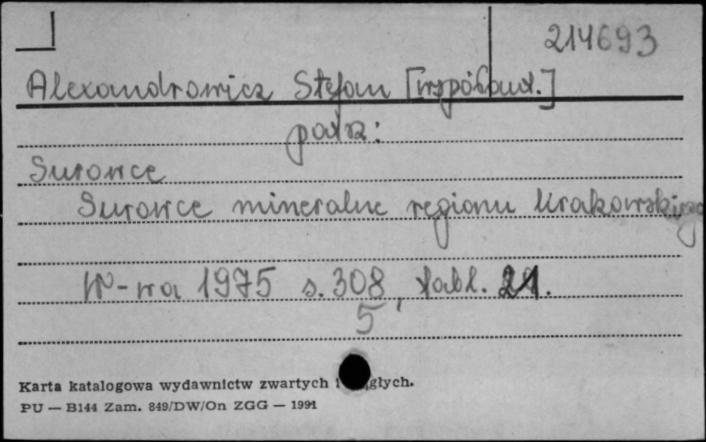 214693
Alexandrowicz Stefan [współaut.]
patrz:
Surowce
Surowce mineralne regionu krakowskiego
W-wa 1975 s. 308, tabl. 21.
5
Karta katalogowa wydawnictw zwartych i
PU — B144 Zam. 849/DW/On ZGG — 1991